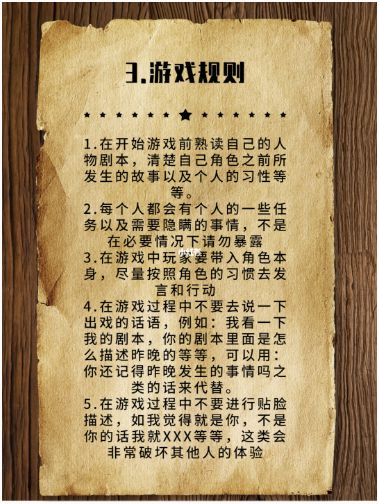 3.游戏规则
1.在开始游戏前熟读自己的人
物剧本，清楚自己角色之前所
发生的故事以及个人的习性等
等。
2.每个人都会有个人的一些任
务以及需要隐瞒的事情，不是
在必要情况下请勿暴露
3.在游戏中玩家要带入角色本
身，尽量按照角色的习惯去发
言和行动
4.在游戏过程中不要去说一下
出戏的话语，例如：我看一下
我的剧本，你的剧本里面是怎
么描述昨晚的等等，可以用：
你还记得昨晚发生的事情吗之
类的话来代替。
5.在游戏过程中不要进行贴脸
描述，如我觉得就是你，不是
你的话我就XXX等等，这类会
非常破坏其他人的体验